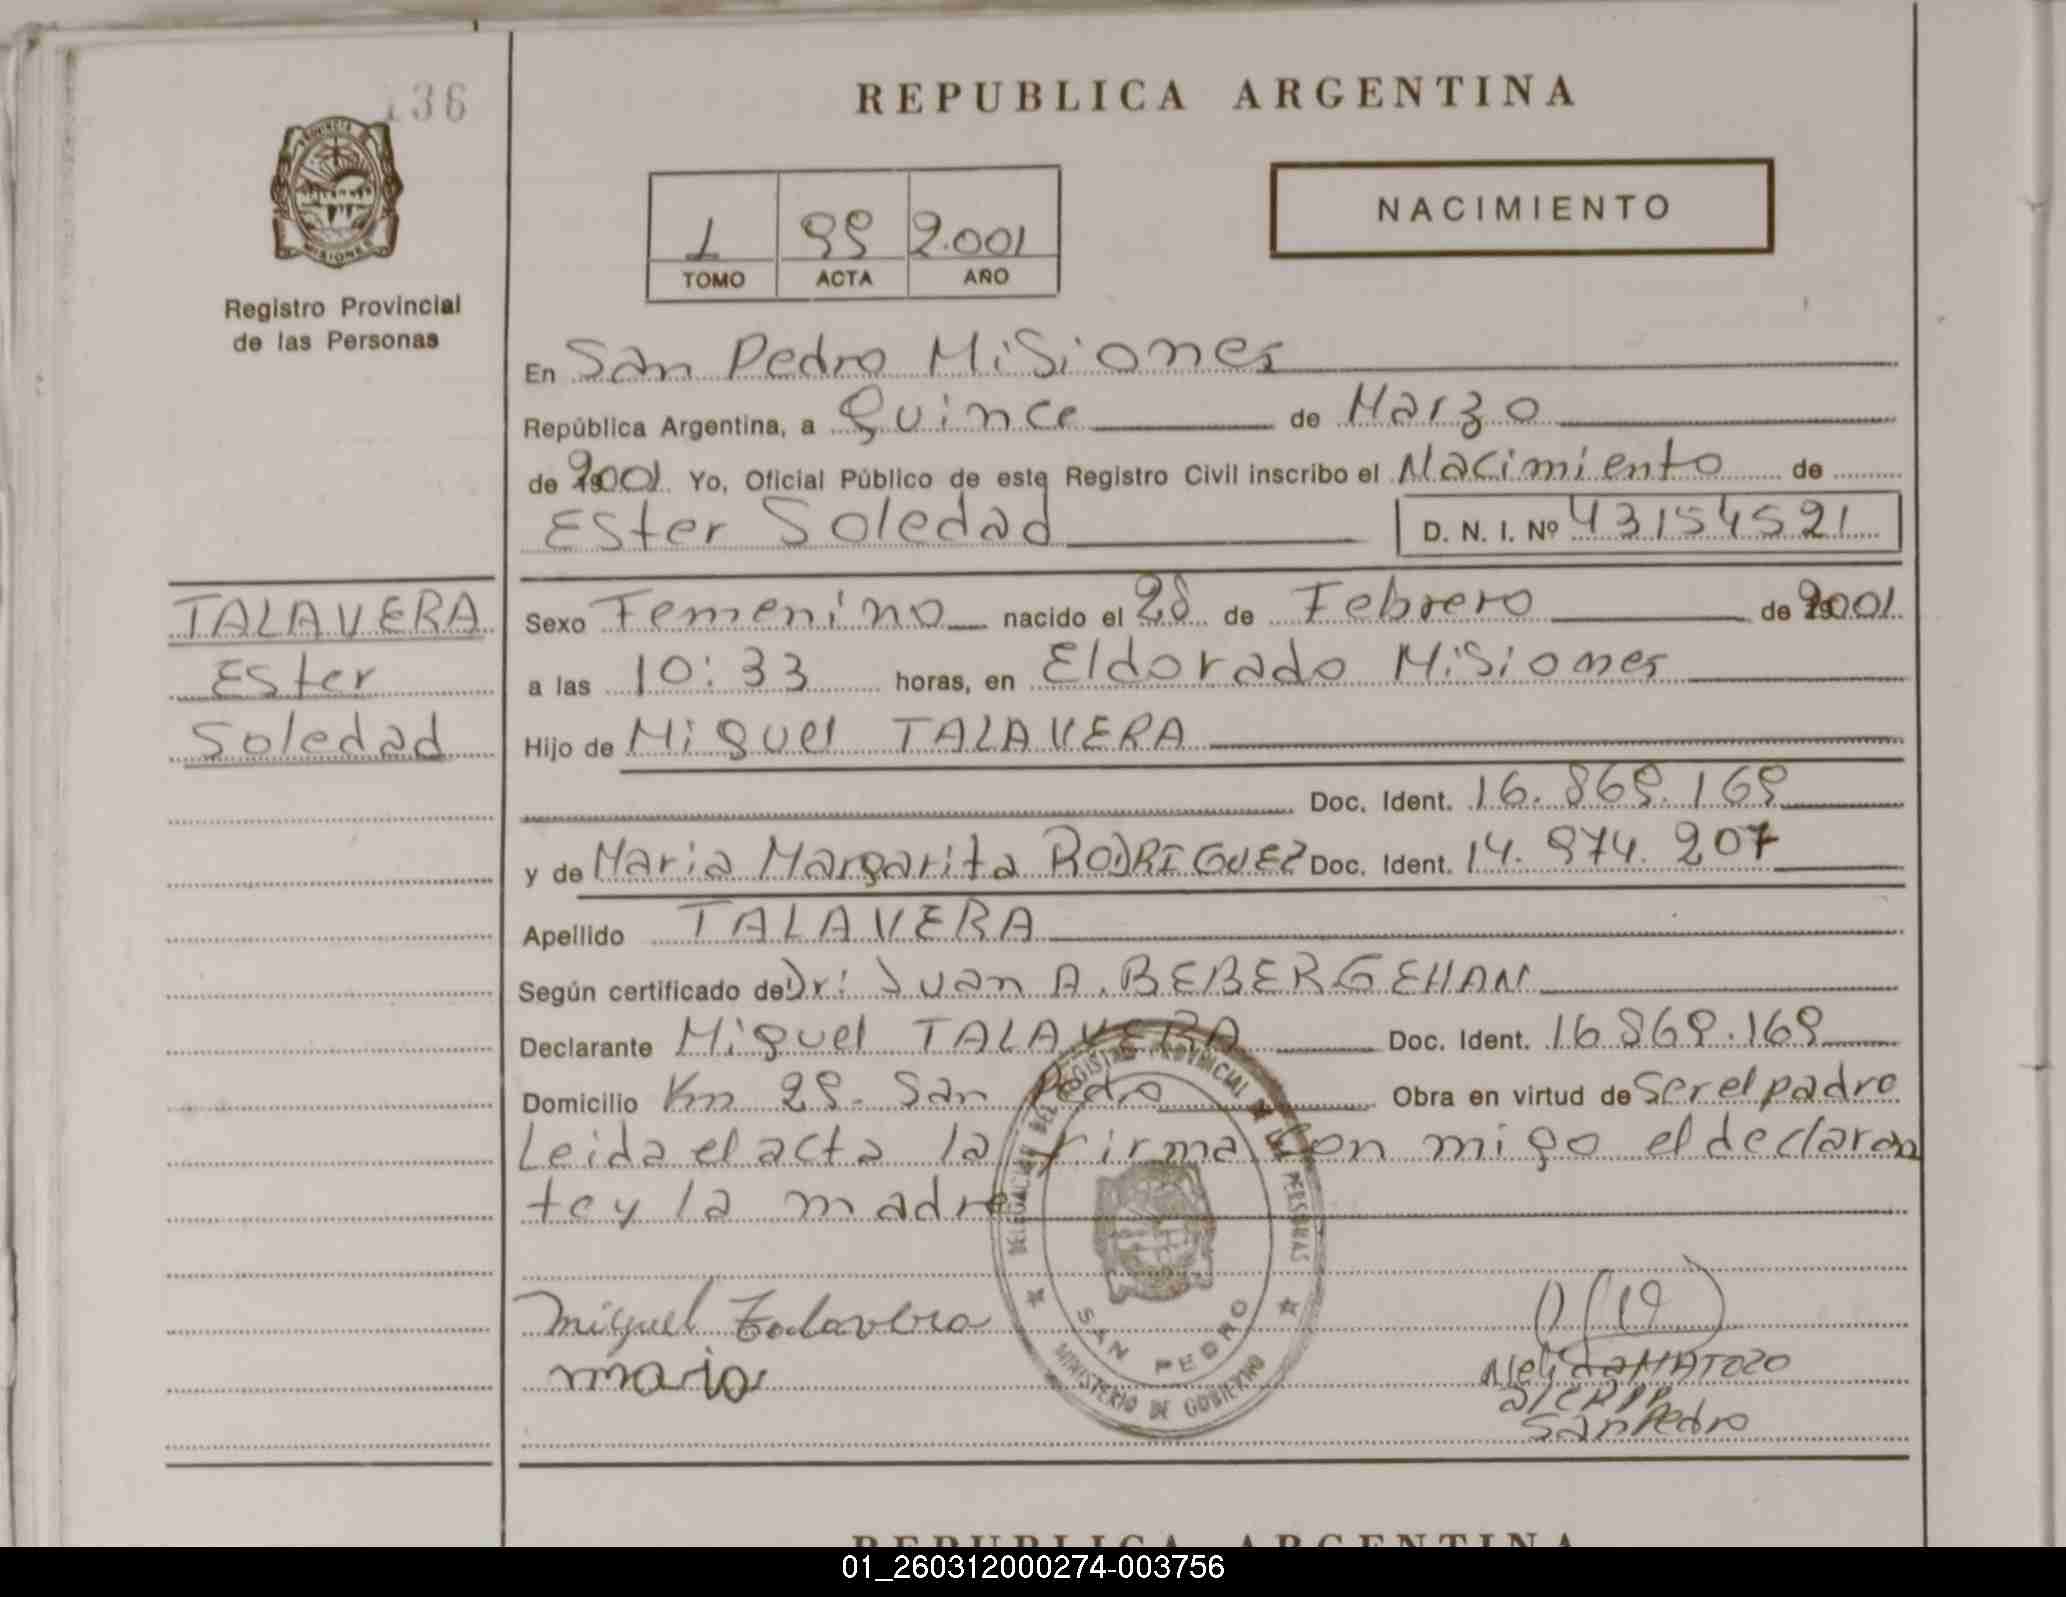 136
REPUBLICA ARGENTINA
NACIMIENTO
1 99 2.001
TOMO ACTA AÑO
Registro Provincial
de las Personas
En San Pedro Misiones
República Argentina, a Quince de Marzo
de 2001 Yo, Oficial Público de este Registro Civil inscribo el Nacimiento de
Ester Soledad D. N. I. Nº 43154521
TALAVERA
Ester
Soledad
Sexo Femenino nacido el 28 de Febrero de 2001
a las 10:33 horas, en Eldorado Misiones
Hijo de Miguel TALAVERA
Doc. Ident. 16.869.169
y de Maria Margarita RODRIGUEZ Doc. Ident. 14.974.207
Apellido TALAVERA
Según certificado de Dr: Juan A. BEBERGEHAN
Declarante Miguel TALAVERA Doc. Ident. 16869.169
Domicilio Km 29. San Pedro Obra en virtud de Ser el padre
Leida el acta la firma con migo el declaran
te y la madre
Miguel Talavera
maria
DELEGACION DEL REGISTRO PROVINCIAL DE PERSONAS
SAN PEDRO
MINISTERIO DE GOBIERNO
Nelida MATOZO
San Pedro
REPUBLICA ARGENTINA
01_260312000274-003756